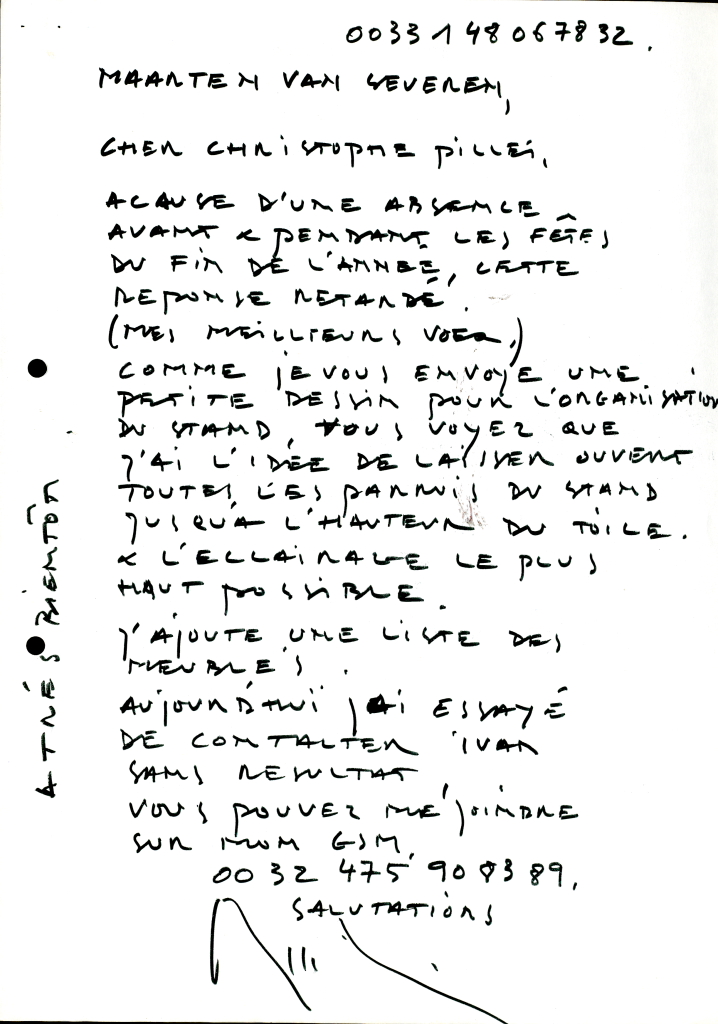 0033 1 48067832.
MAARTEN VAN SEVEREN,
CHER CHRISTOPHE PILLET,
A CAUSE D'UNE ABSENCE
AVANT & PENDANT LES FÊTES
DU FIN DE L'ANNÉE, CETTE
REPONSE RETARDÉ.
(MES MEILLIEURS VOEX.)
COMME JE VOUS ENVOYE UNE
PETITE DESSIN POUR L'ORGANISATION
DU STAND, VOUS VOYEZ QUE
J'AI L'IDÉE DE LAISSER OUVERT
TOUTES LES PARRUIS DU STAND
JUSQU'A L'HAUTEUR DU TOILE.
& L'ECLAIRAGE LE PLUS
HAUT POSSIBLE.
J'AJOUTE UNE LISTE DES
MEUBLES.
AUJOURD'HUI J'AI ESSAYÉ
DE CONTACTER IVAN
SANS RESULTAT
VOUS POUVEZ ME JOINDRE
SUR MON GSM,
00 32 475 90 83 89.
SALUTATIONS
A TRÉS BIENTÔT